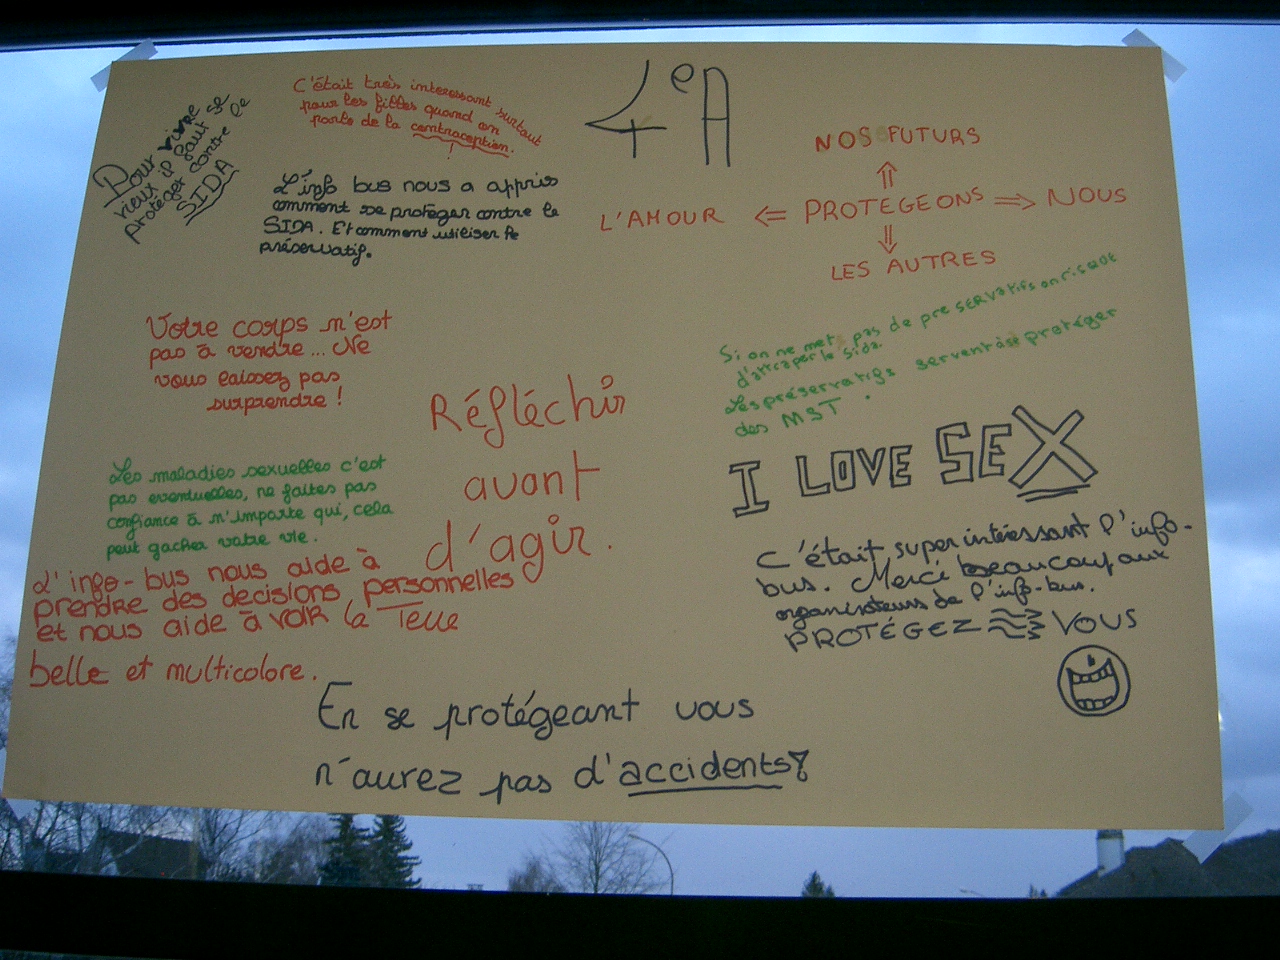 4eA
Pour vivre
vieux il faut se
protéger contre le
SIDA
C'était très interessant surtout
pour les filles quand on
parle de la contraception.
!
L'info bus nous a appris
comment se protéger contre le
SIDA. Et comment utiliser le
préservatif.
NOS FUTURS
L'AMOUR ⇐ PROTEGEONS ⇒ NOUS
LES AUTRES
Votre corps n'est
pas à vendre... Ne
vous laissez pas
surprendre !
Réfléchir
avant
d'agir.
Si on ne met pas de preservatifs on risque
d'attraper le sida.
Les préservatifs servent à se protéger
des MST.
I LOVE SEX
Les maladies sexuelles c'est
pas eventuelles, ne faites pas
confiance à n'importe qui, cela
peut gacher votre vie.
L'info-bus nous aide à
prendre des decisions personnelles
et nous aide à voir la Terre
belle et multicolore.
C'était super intéressant l'info-
bus. Merci beaucoup aux
organisateurs de l'info-bus.
PROTÉGEZ VOUS
En se protégeant vous
n'aurez pas d'accidents!